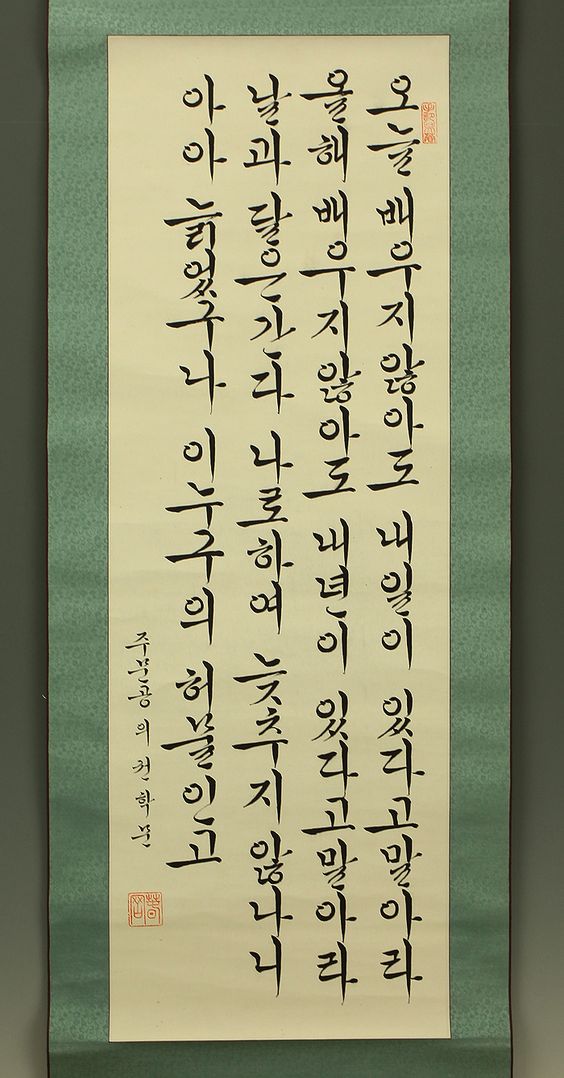 오늘 배우지 않아도 내일이 있다고 말아라
올해 배우지 않아도 내년이 있다고 말아라
날과 달은 간다 나로하여 늦추지 않나니
아아 늙었구나 이 누구의 허물인고
주문공의 권학문